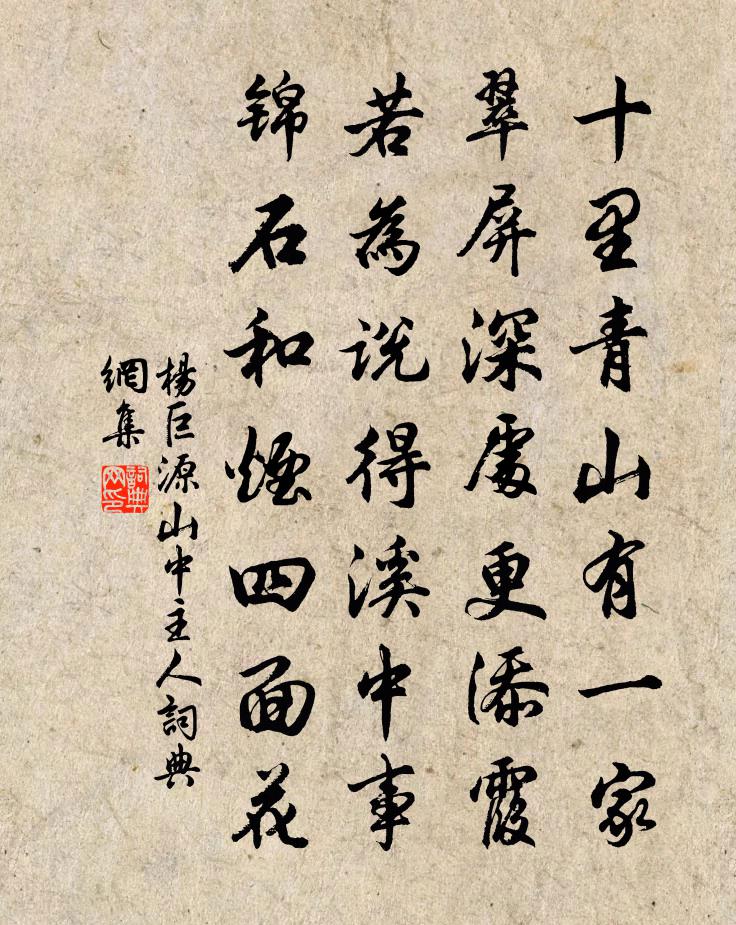 十里青山有一家
翠屏深處更添霞
若為説得溪中事
锦石和煙四面花
楊巨源山中主人詞典
網集
詞典網印